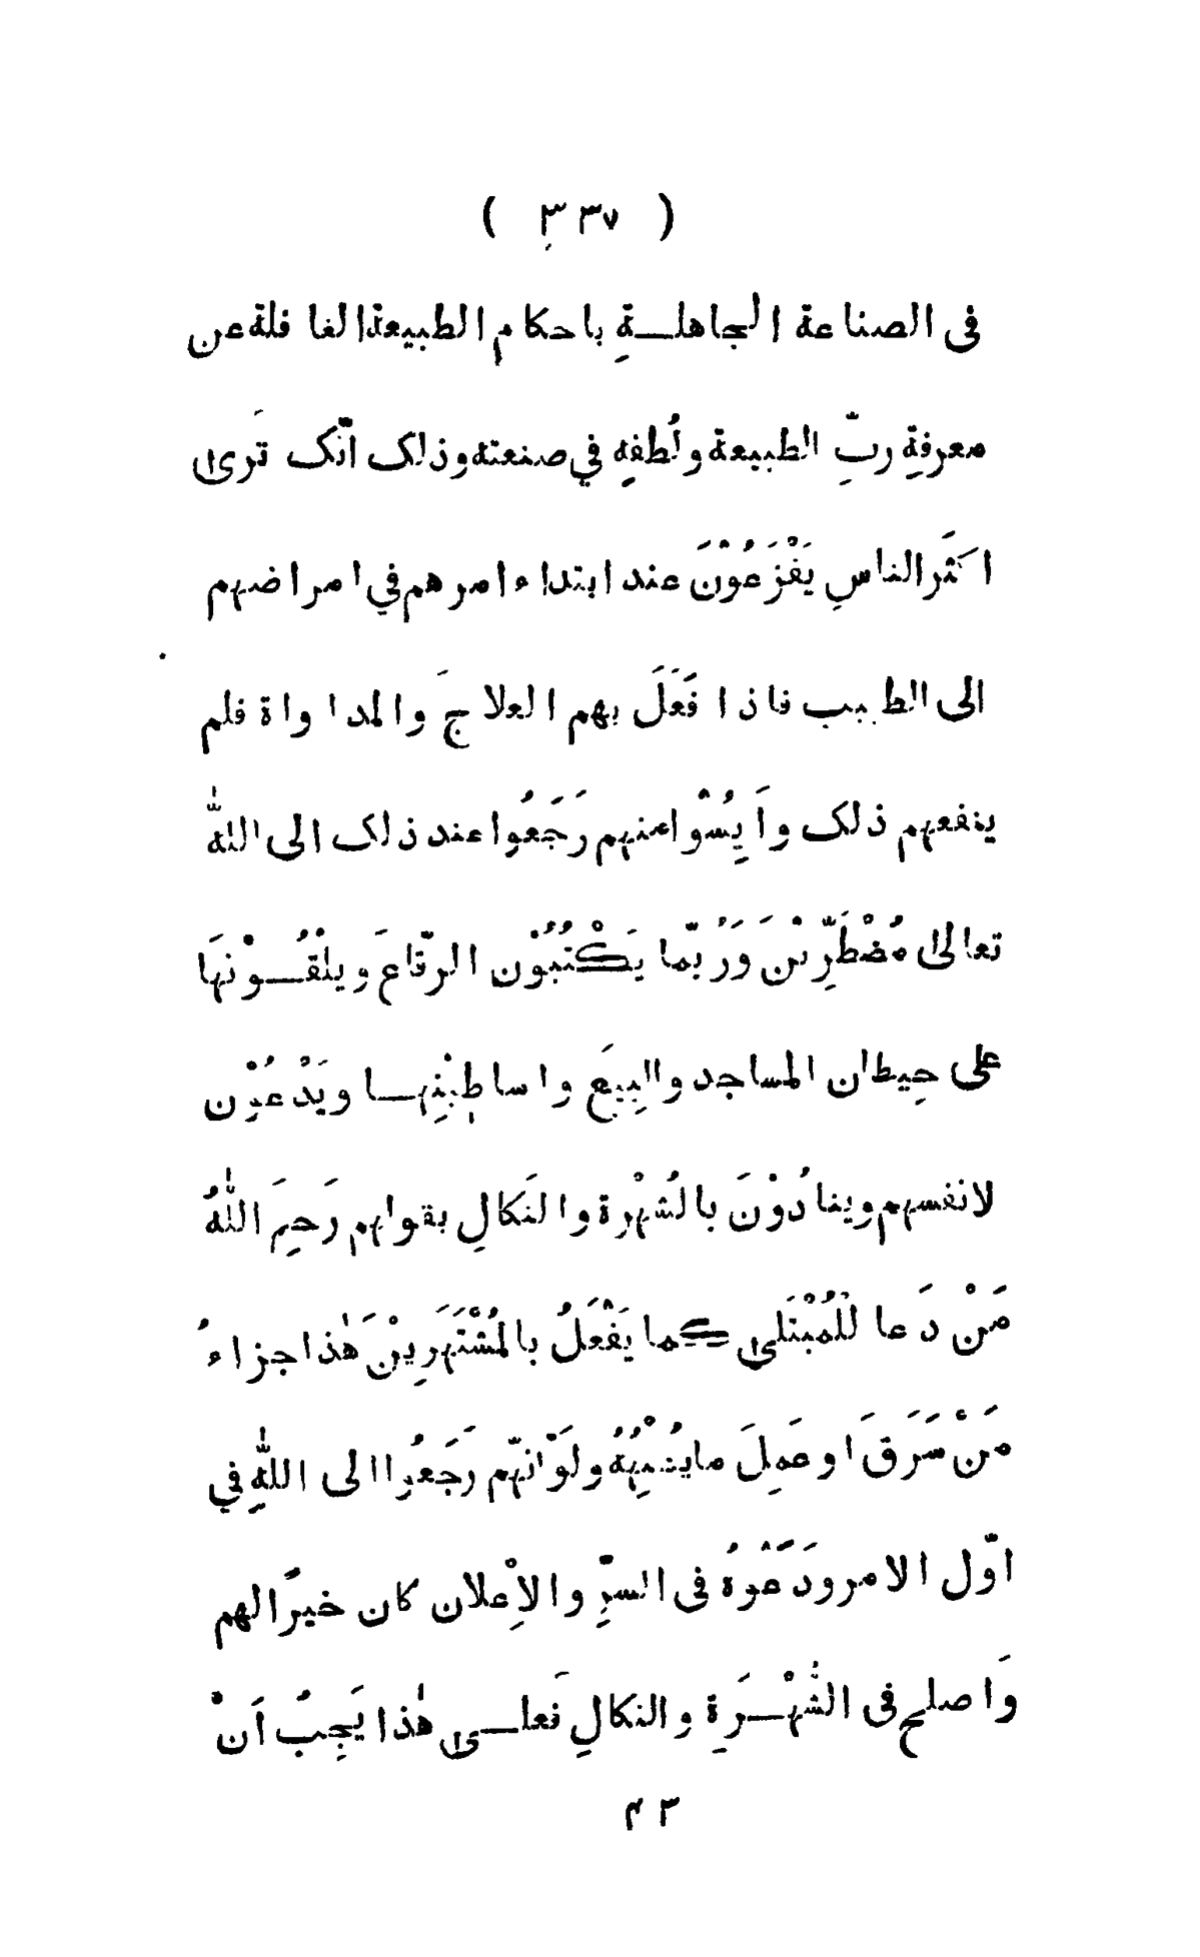 ( ٣٣٧ )
فى الصناعة الجاهلـــةِ باحكام الطبيعة الغافلة عن
معرفةِ ربِّ الطبيعة ولُطفِهِ في صنعته وذلك انّك تَرىٰ
اكثَر الناسِ يَفْزَعُوْنَ عند ابتداء امرهم في امراضهم
الى الطبيب فاذا فَعَلَ بهم العلاجَ والمداواة فلم
ينفعهم ذلك واَيِسُوْا منهم رَجَعُوا عند ذلك الى اللّٰه
تعالىٰ مُضْطَرِّيْنَ وَرُبّما يَكْتُبُوْن الرّقاعَ ويلْقُـــوْنهَا
على حِيطان المساجد والبِيَع واساطِيْنِهـــا ويَدْعُوْن
لانفسهم وينادُوْنَ بالشُهْرة والنَكالِ بقولهم رَحِمَ اللّٰهُ
مَنْ دَعا لِلْمُبْتَلىٰ كما يَفْعَلُ بالمُشْتَهَرِيْنَ هٰذا جزاءُ
مَنْ سَرَقَ او عَمِلَ ما يُشْبِهُهُ ولَوْ انّهم رَجَعُوا الى اللّٰهِ في
اوّل الامر ودَعَوْهُ فى السرِّ والاِعْلان كان خيرًا لهم
وَاصلح فى الشُهْـــرَةِ والنكالِ فَعلـــىٰ هٰذا يَجِبُ اَنْ
٤٣